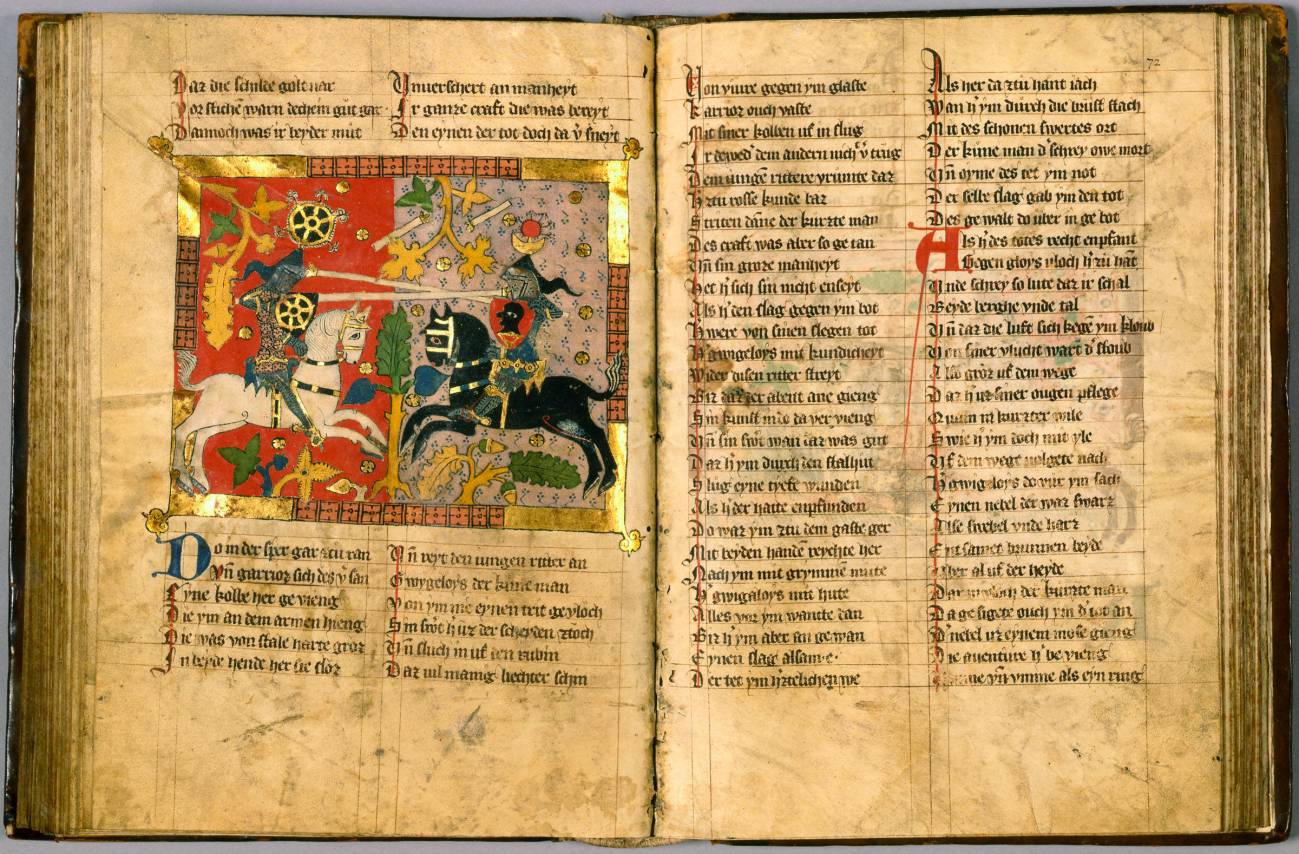 Daz die schilde golt var
Vor stiche warn dechein gut gar
Dannoch was ir beyder mut
Vnuerschert an manheyt
Ir ganze craft die was bereyt
Den eynen der tot doch da v sneyt
Do in der sper gar ztu ran
Vn garrioz sich des v san
Eyne kolbe her ge vieng
Die ym an dem armen hieng
Die was von stale harte groz
In beyde hende her sie sloz
Vn reyt den iungen ritter an
Gwygeloys der kune man
Von ym nie eynen trit ge vloch
Sin swt h uz der scheyden ztoch
Vn sluch in uf den rubin
Daz vil manig liechter schin
72
Von viure gegen ym glaste
Karrioz ouch vaste
Mit siner kolben uf in slug
Ir dewed dem andern nich v trug
Dem iunge rittere zurnite daz
H ztu rosse kunde baz
Striten dane der kurzte man
Des craft was aber so ge tan
Vn sin groze manheyt
Het h sich sin nicht enseyt
Als h den slag gegen ym bot
H were von sinen slegen tot
H gwigeloys mit kundicheyt
Wider disen ritter streyt
Biz daz der abent ane gieng
Sin kunst in do da ver vieng
Vn sin swt wan daz was gut
Daz h ym durch den stalhut
Slug eyne tyefe wunden
Als h der hatte enpfunden
Do waz ym ztu dem gaste ger
Mit beyden hande reychte her
Nach ym mit grymme mute
H gwigaloys mit hute
Alles vor ym wancte dan
Biz h ym aber an ge wan
Eynen slag alsam e
Der tet ym hztelichen we
Als her da ztu hant sach
Wan h ym durch die brust stach
Mit des schonen swertes ort
Der kune man d schrey owe mort
Vn oyme des tet ym not
Der selbe slag gab ym den tot
Des ge walt do uber in ge bot
Als h des todes recht enpfant
Gegen gloys vloch h zu hat
Vnde schrey so lute daz ir schal
Beyde berghe vnde tal
Vn daz die luft sich kege ym kloub
Von siner vlucht wart d stoub
Also groz uf dem wege
Daz h uz siner ougen pflege
Quam in kurzter wile
Swie h ym doch mit yle
Vf dem wege volgete nach
H gwigeloys do vur ym sach
Eynen nebel der waz swarz
Alse swebel vnde harz
Ent samet brunnen beyde
Aber al uf der heyde
Dar in vloch der kurzte man
Da ge sigete ouch ym d tot an
D nebel uz eynem mose gieng
Die auenture h be vieng
vmme vn vmme als eyn ring